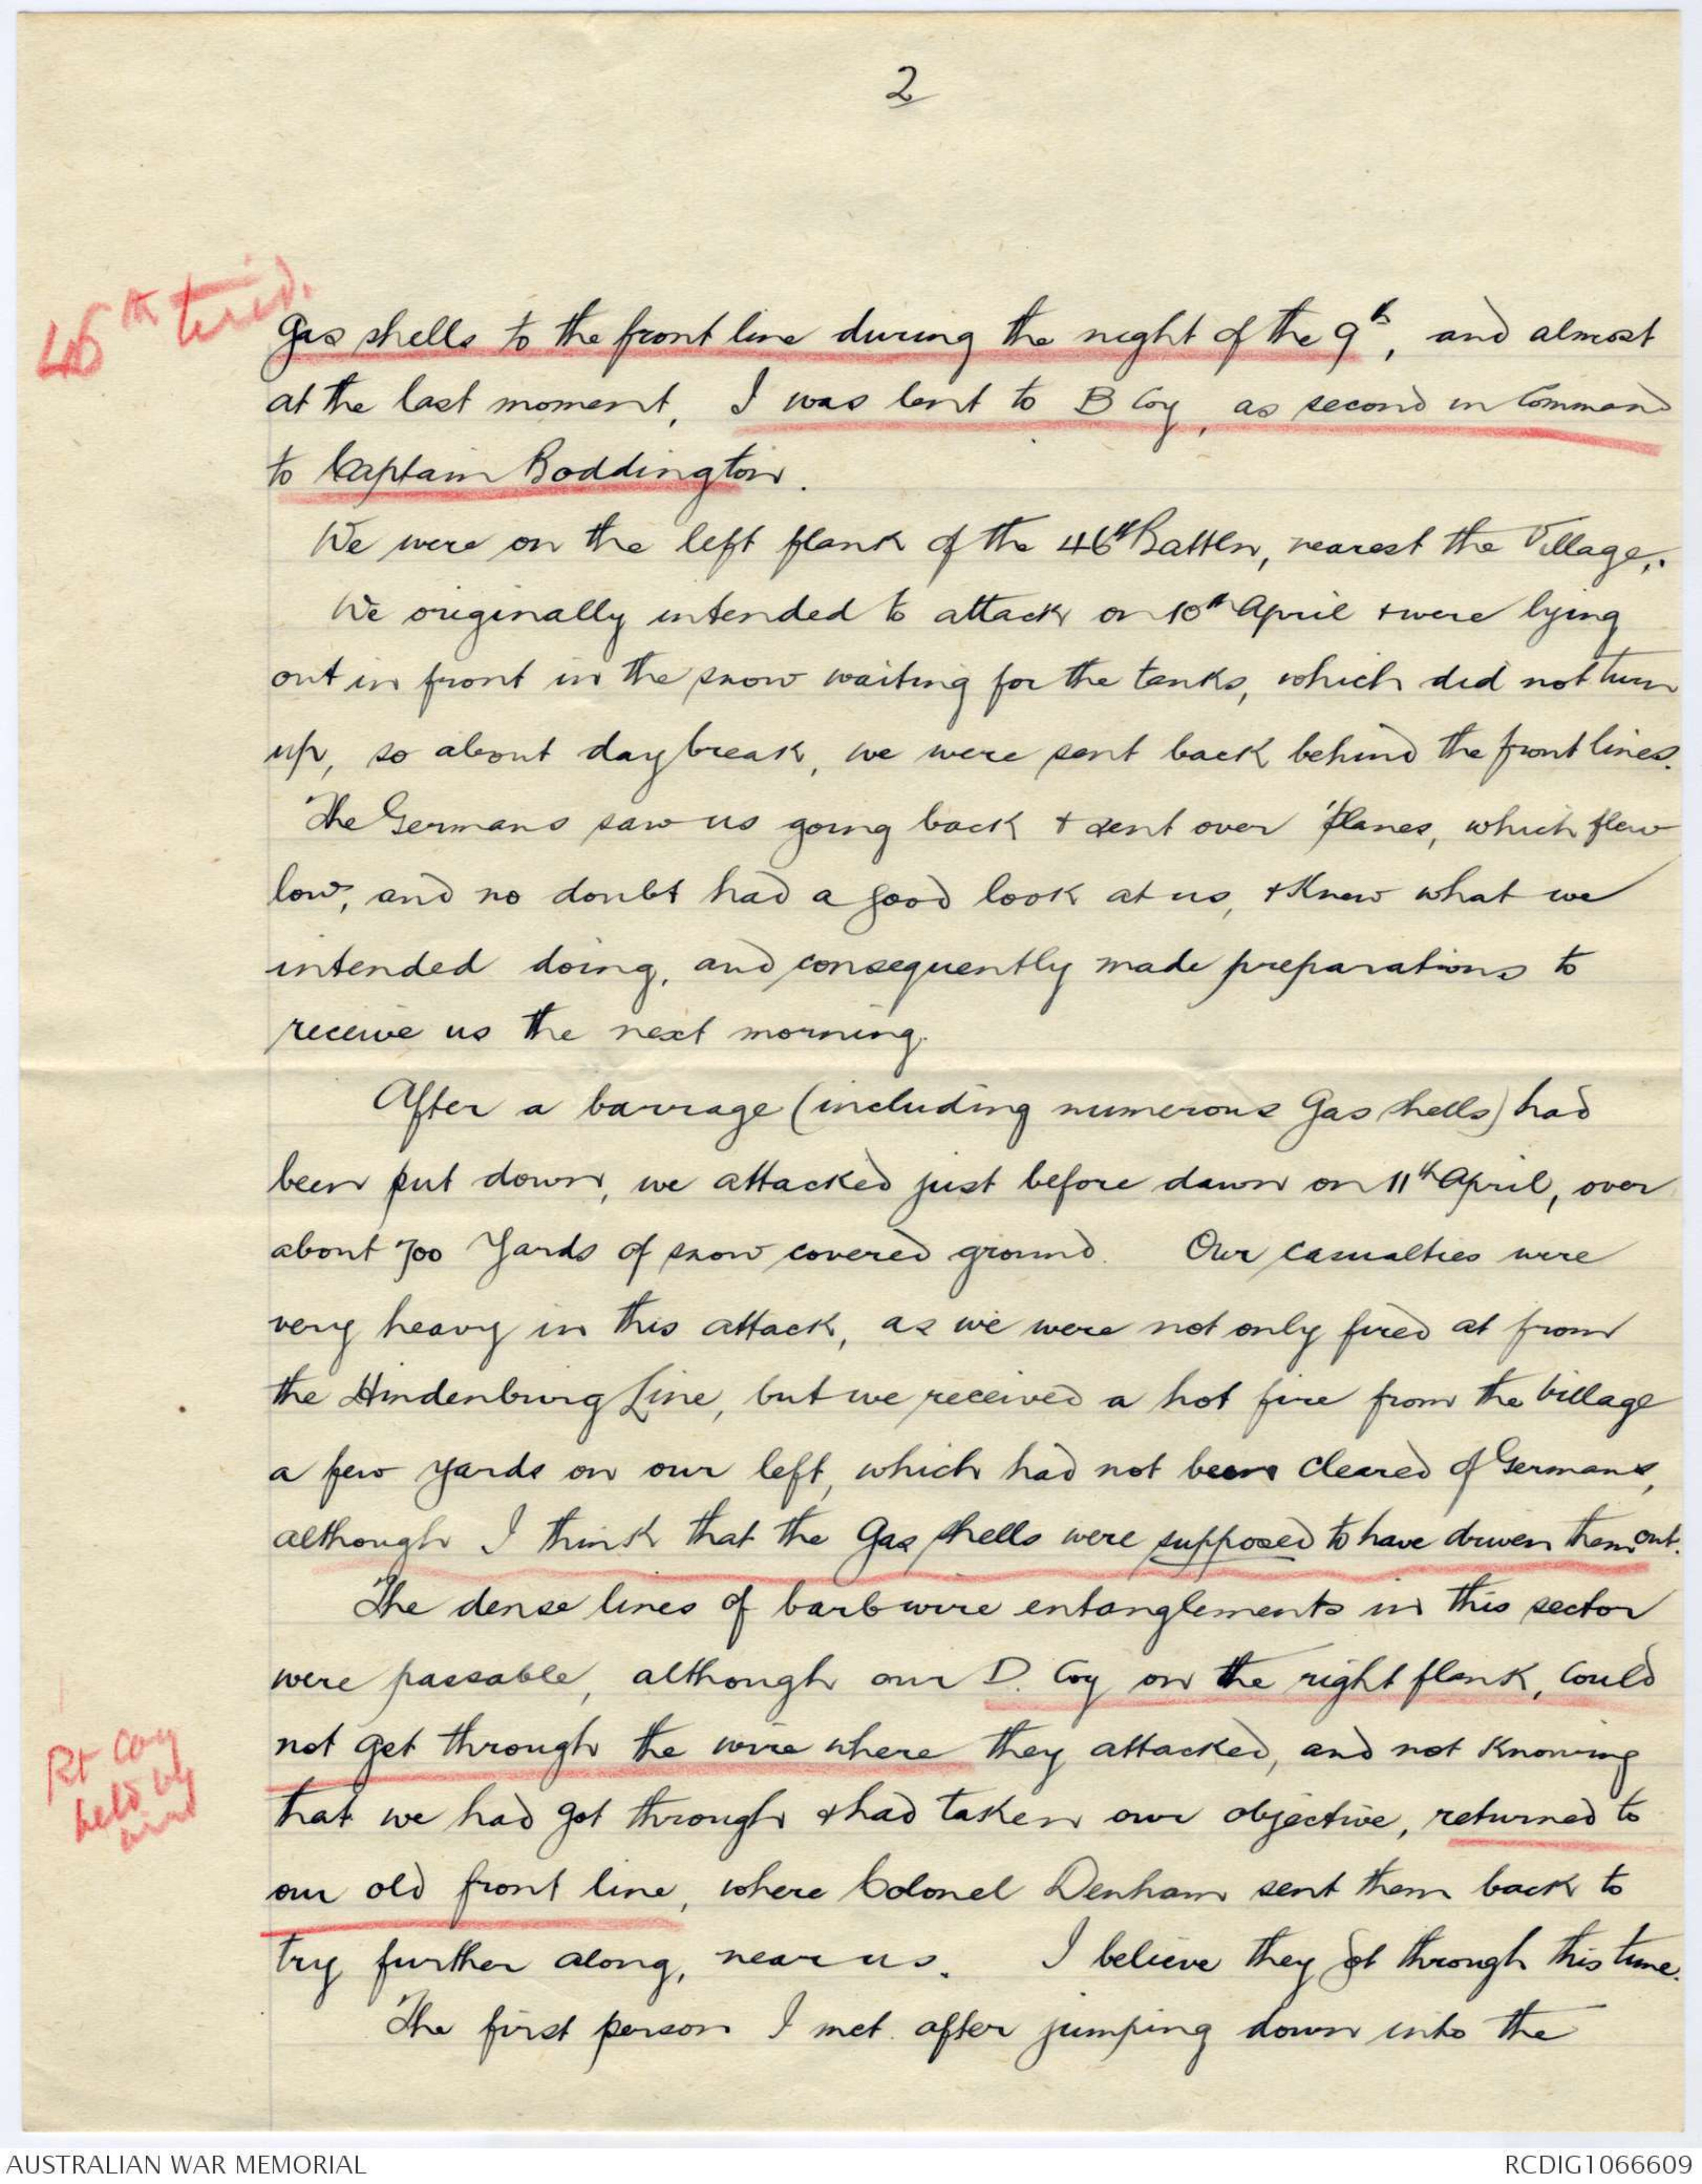 2
46th tired.
Gas shells to the front line during the night of the 9th, and almost
at the last moment, I was lent to B Coy, as second in Command
to Captain Boddington.
We were on the left flank of the 46th Battln, nearest the Village.
We originally intended to attack on 10th April & were lying
out in front in the snow waiting for the tanks, which did not turn
up, so about daybreak, we were sent back behind the front lines.
The Germans saw us going back & sent over 'planes, which flew
low, and no doubt had a good look at us, & knew what we
intended doing, and consequently made preparations to
receive us the next morning.
After a barrage (including numerous Gas shells) had
been put down, we attacked just before dawn on 11th April, over
about 700 Yards of snow covered ground. Our casualties were
very heavy in this attack, as we were not only fired at from
the Hindenburg Line, but we received a hot fire from the Village
a few yards on our left, which had not been cleared of Germans,
although I think that the Gas shells were supposed to have driven them out.
The dense lines of barbwire entanglements in this sector
were passable, although our D. Coy on the right flank, could
not get through the wire where they attacked, and not knowing
Rt Coy
held by
wire
that we had got through & had taken our objective, returned to
our old front line, where Colonel Denham sent them back to
try further along, near us. I believe they got through this time.
The first person I met after jumping down into the
AUSTRALIAN WAR MEMORIAL
RCDIG1066609